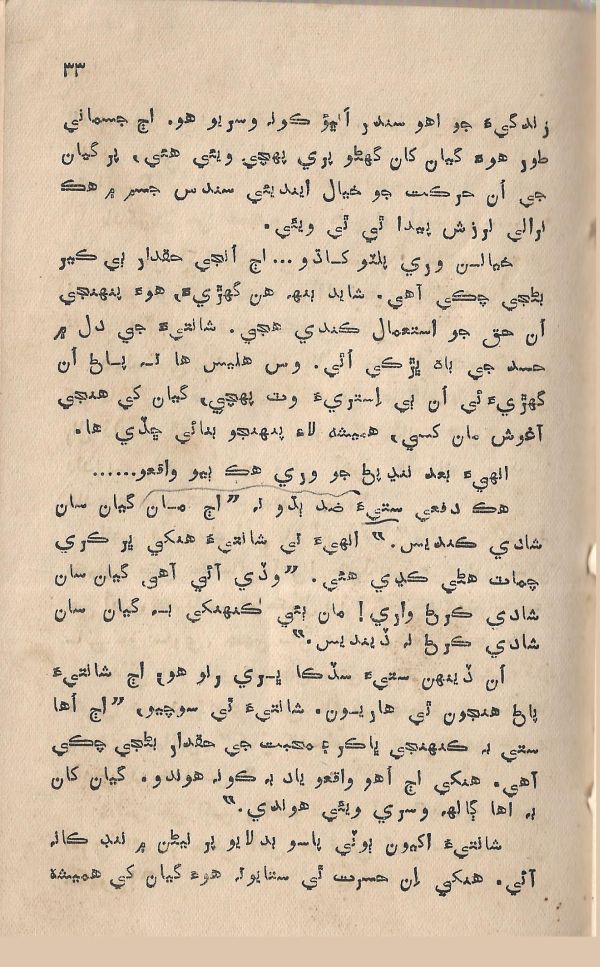 ٣٣
زندگيءَ جو اهو سندر اُڀڙو ڪونہ وسريو هو. اڄ جسماني
طور هوءَ گيان کان گهڻو پري پهچي ويئي هئي، پر گيان
جي اُن حرڪت جو خيال ايندي ئي سندس جسم ۾ هڪ
نرالي لرزش پيدا ٿي ٿي ويئي.
خيالن وري پلٽو کاڌو... اڄ اُنجي حقدار ٻي ڪير
بڻجي چڪي آهي. شايد ٻنهہ هن گهڙيءَ، هوءَ پنهنجي
اُن حق جو استعمال ڪندي هجي. شانتيءَ جي دل ۾
حسد جي باهہ ڀڙڪي اُٿي. وس هليس ها تہ پاڻ اُن
گهڙيءَ ئي اُن ٻي اِستريءَ وٽ پهچي، گيان کي هنجي
آغوش مان کسي، هميشہ لاءِ پنهنجو بنائي ڇڏي ها.
انهيءَ بعد ننڍپڻ جو وري هڪ ٻيو واقعو......
هڪ دفعي ستيءَ ضد ٻڌو تہ ”اڄ مان گيان سان
شادي ڪنديس.“ انهيءَ تي شانتيءَ هنکي ڀر ڪري
چماٽ هڻي ڪڍي هئي. ”وڏي آئي آهي گيان سان
شادي ڪرڻ واري! مان ٻئي ڪنهنکي بہ گيان سان
شادي ڪرڻ نہ ڏينديس.“
اُن ڏينهن ستيءَ سڏڪا ڀري رنو هو، اڄ شانتيءَ
پاڻ هنجون ٿي هاريون. شانتيءَ ٿي سوچيو، ”اڄ اُها
ستي بہ ڪنهنجي ڀاڪر ۽ محبت جي حقدار بڻجي چڪي
آهي. هنکي اڄ اُهو واقعو ياد بہ ڪونہ هوندو. گيان کان
بہ اها ڳالهہ وسري ويئي هوندي.“
شانتيءَ اکيون ٻوٽي پاسو بدلايو پر نيڻن ۾ ننڊ ڪانہ
آئي. هنکي اِن حسرت ٿي ستايو تہ هوءَ گيان کي هميشہ